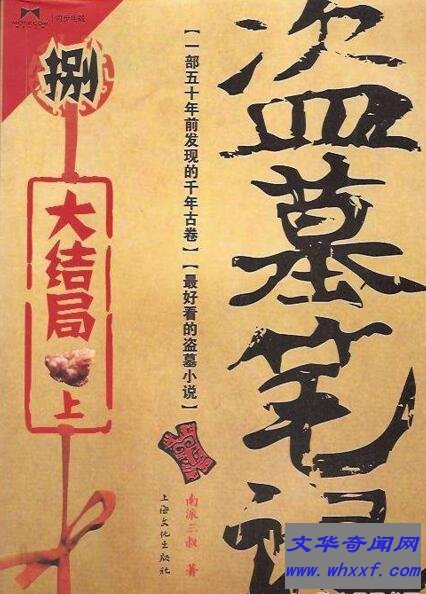 捌
大结局
上
【一部五十年前发现的千年古卷】【最好看的盗墓小说】
盗墓笔记
南派三叔 著
上海文化出版社
文华奇闻网
www.whxxf.com